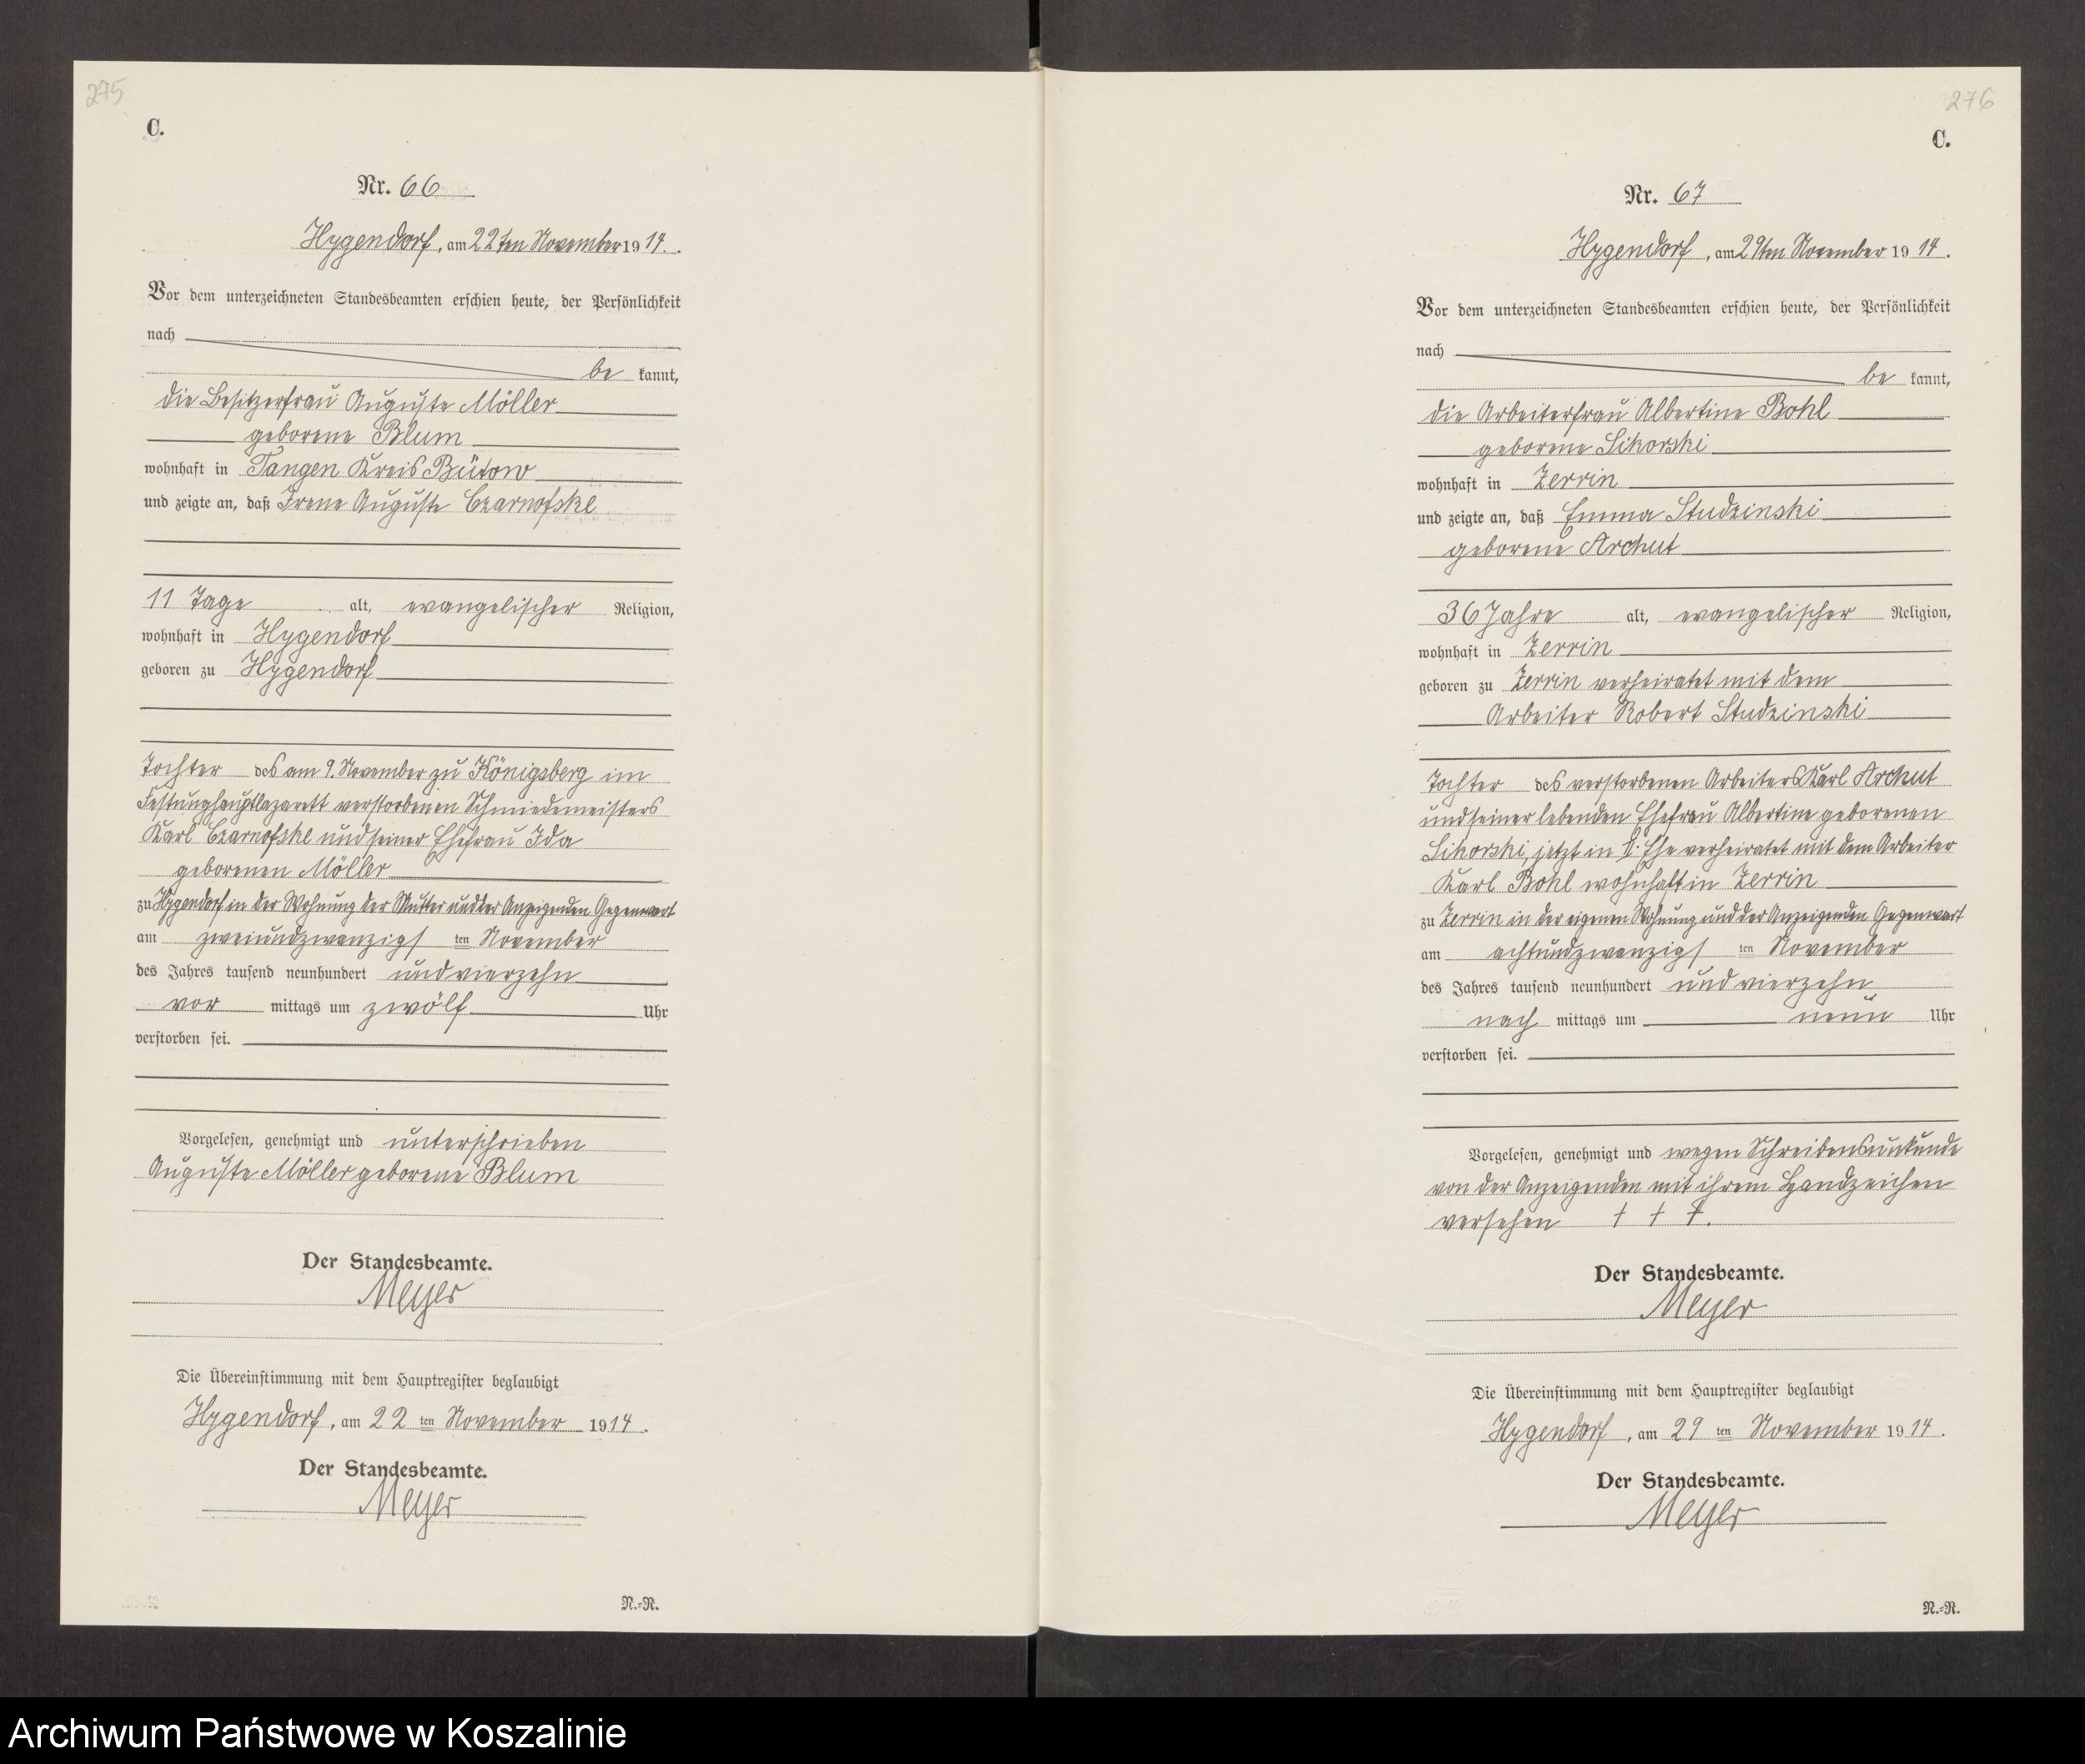 275
C.
Nr. 66
Hygendorf, am 22ten November 1914.
Vor dem unterzeichneten Standesbeamten erschien heute, der Persönlichkeit
nach
be kannt,
die Besitzerfrau Auguste Möller
geborene Blum
wohnhaft in Tangen Kreis Bütow
und zeigte an, daß Irene Auguste Czarnofske
11 Tage alt, evangelischer Religion,
wohnhaft in Hygendorf
geboren zu Hygendorf
Tochter des am 9. November zu Königsberg im
Festunghauptlazarett verstorbenen Schmiedemeisters
Karl Czarnofske und seiner Ehefrau Ida
geborenen Möller
zu Hygendorf in der Wohnung der Mutter und der Anzeigenden Gegenwart
am zweiundzwanzigs ten November
des Jahres tausend neunhundert und vierzehn
vor mittags um zwölf Uhr
verstorben sei.
Vorgelesen, genehmigt und unterschrieben
Auguste Möller geborene Blum
Der Standesbeamte.
Meyer
Die Übereinstimmung mit dem Hauptregister beglaubigt
Hygendorf, am 22 ten November 1914.
Der Standesbeamte.
Meyer
N.-R.
276
C.
Nr. 67
Hygendorf, am 29ten November 1914.
Vor dem unterzeichneten Standesbeamten erschien heute, der Persönlichkeit
nach
be kannt,
die Arbeiterfrau Albertine Bohl
geborene Sikorski
wohnhaft in Zerrin
und zeigte an, daß Emma Studzinski
geborene Archut
36 Jahre alt, evangelischer Religion,
wohnhaft in Zerrin
geboren zu Zerrin verheiratet mit dem
Arbeiter Robert Studzinski
Tochter des verstorbenen Arbeiters Karl Archut
und seiner lebenden Ehefrau Albertine geborenen
Sikorski, jetzt in II. Ehe verheiratet mit dem Arbeiter
Karl Bohl wohnhaft in Zerrin
zu Zerrin in der eigenen Wohnung und der Anzeigenden Gegenwart
am achtundzwanzigs ten November
des Jahres tausend neunhundert und vierzehn
nach mittags um neun Uhr
verstorben sei.
Vorgelesen, genehmigt und wegen Schreibensunkunde
von der Anzeigenden mit ihrem Handzeichen
versehen + + +.
Der Standesbeamte.
Meyer
Die Übereinstimmung mit dem Hauptregister beglaubigt
Hygendorf, am 29 ten November 1914.
Der Standesbeamte.
Meyer
N.-R.
Archiwum Państwowe w Koszalinie